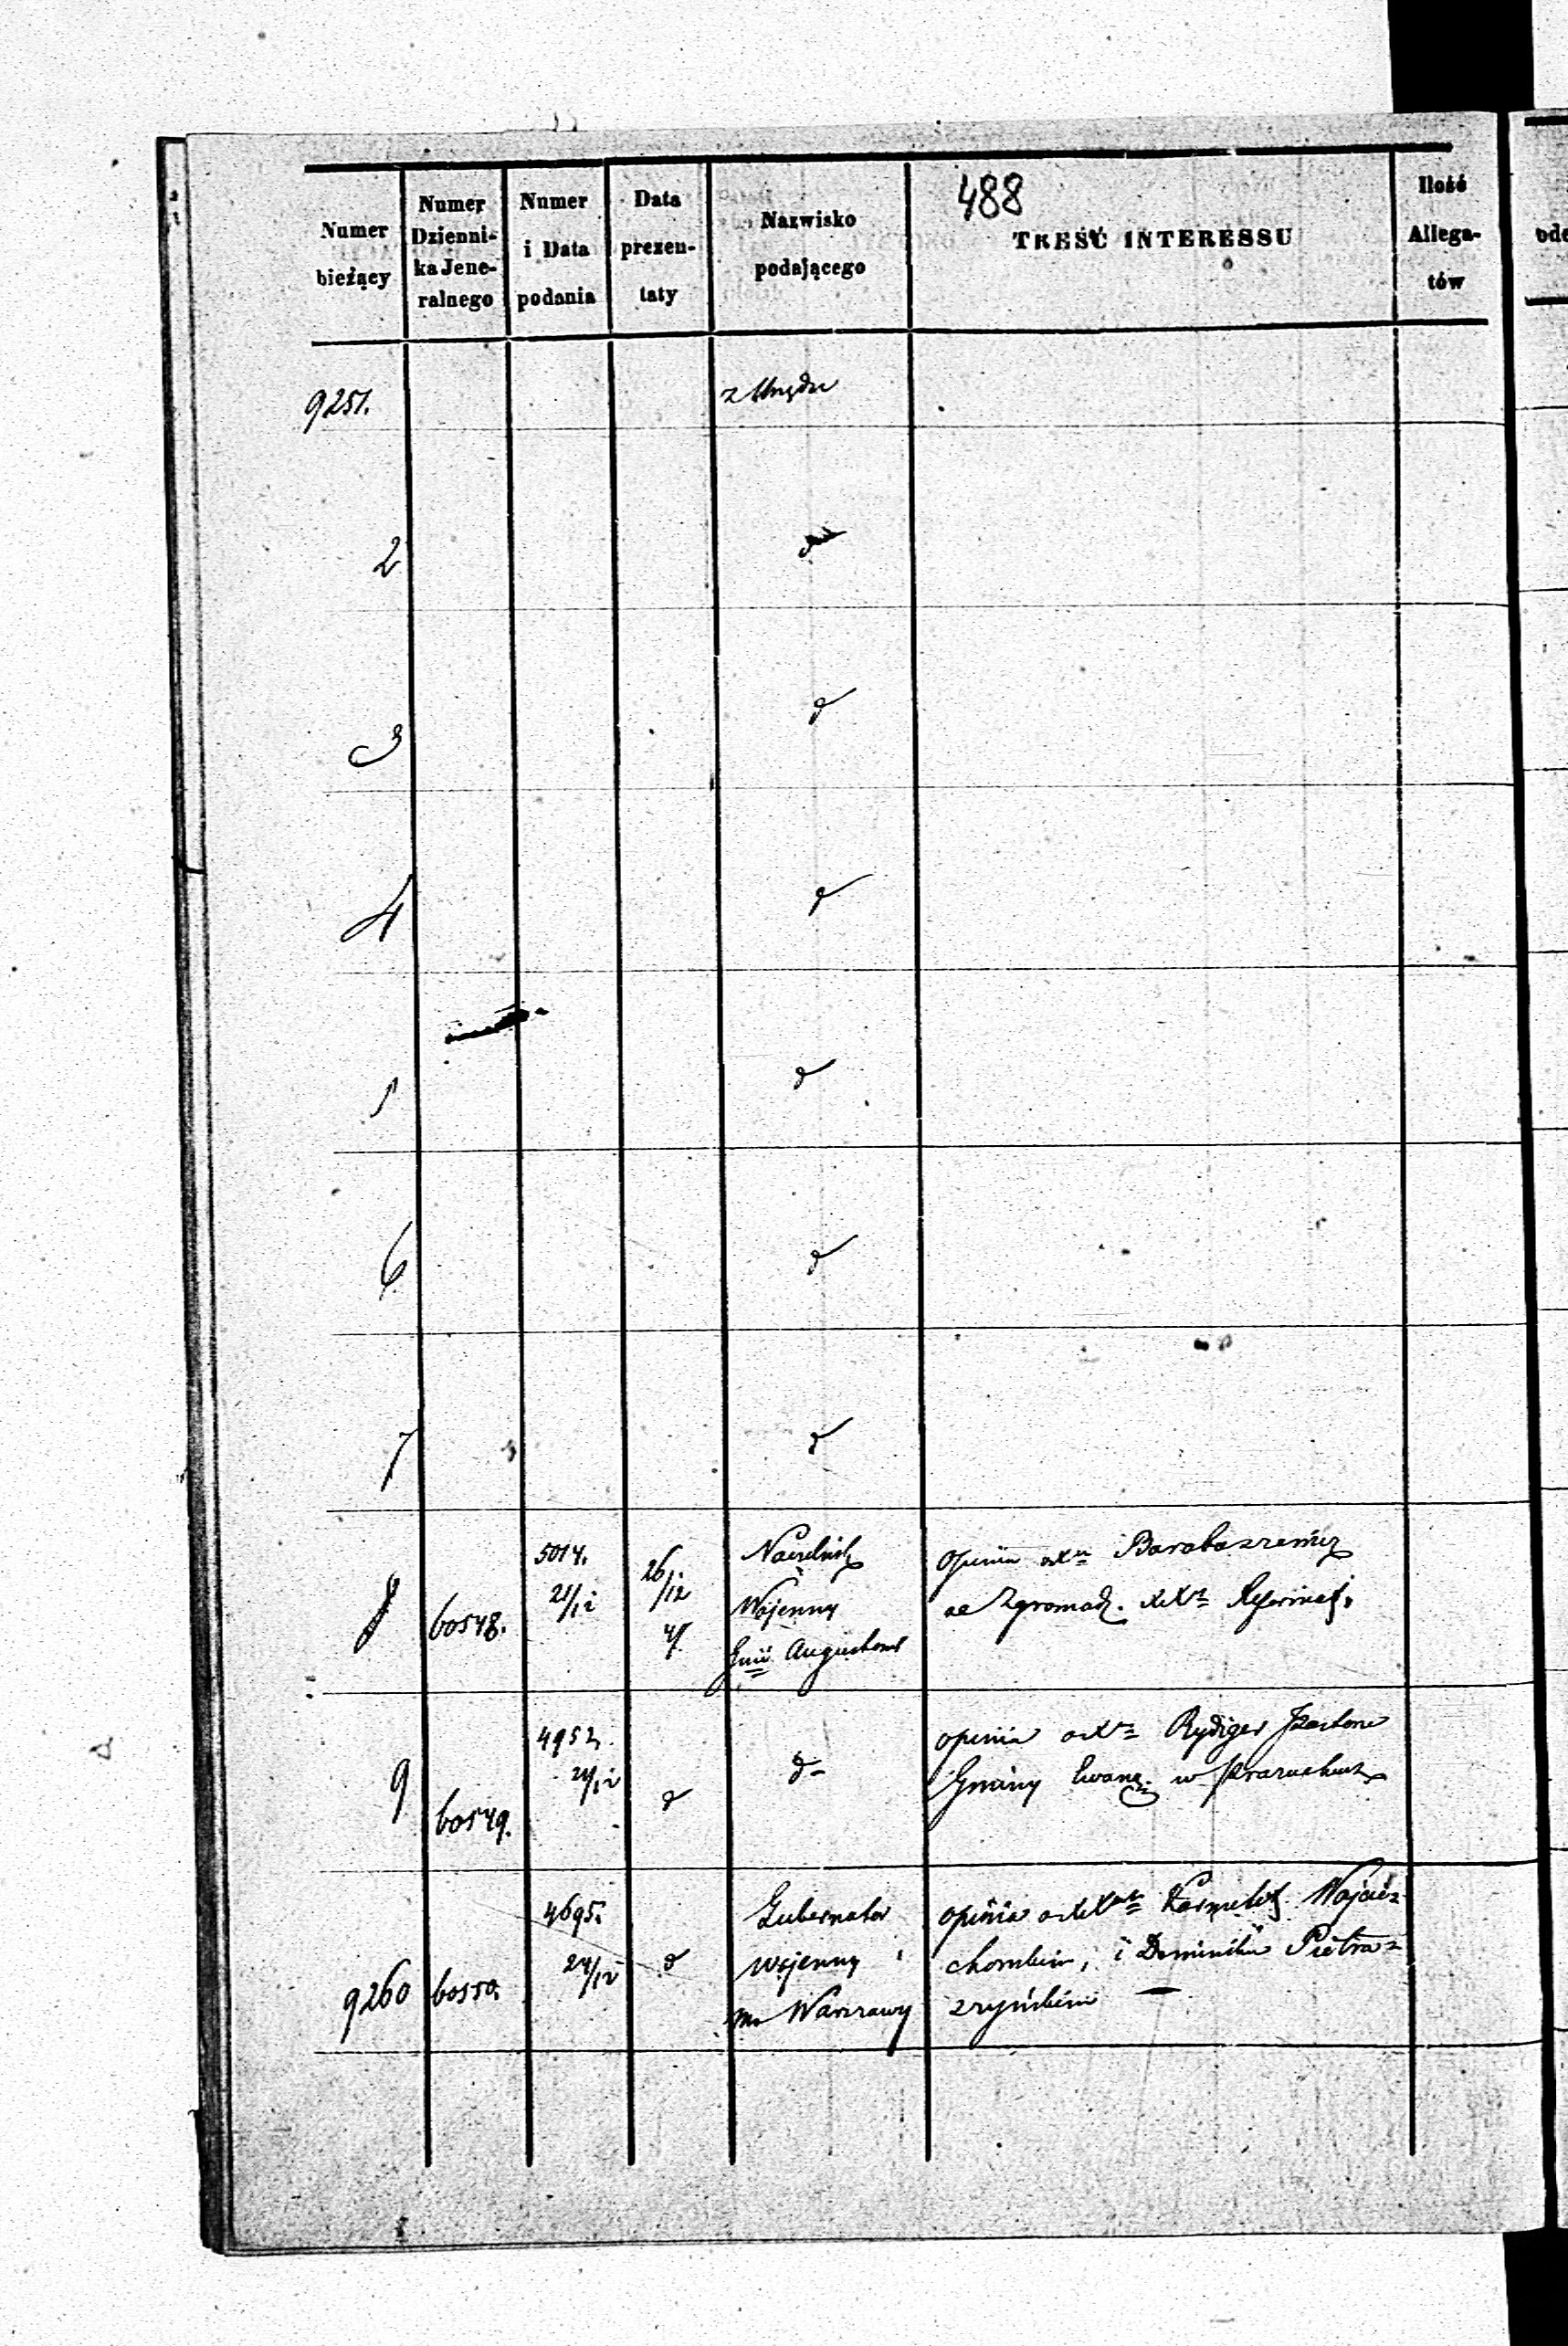 488
Numer bieżący
Numer Dzienni- ka Jene- ralnego
Numer i Data podania
Data prezen- taty
Nazwisko podającego
TREŚĆ INTERESSU
Ilość Allega- tów
9251. z Urzędu
2
3 d
4 d
5 d
6 d
7 d
8 60548. 5014. 21/12 26/12 4/. Naczelnik
Wojenny
Gnii Augustows
opinia o Xu Barabaszewicz
ze Zgromadz. XX Reformat.
9 60549. 4952. 21/12 d d-
opinia o Rydiger Pastorze
Gminy Ewang.
9260 60550. 4695. 24/12 d Gubernator
wojenny
m. Warszawy
opinia o XX Karmelit. Wojcie-
chowskim, i Dominiku Pietra-
szyńskim —